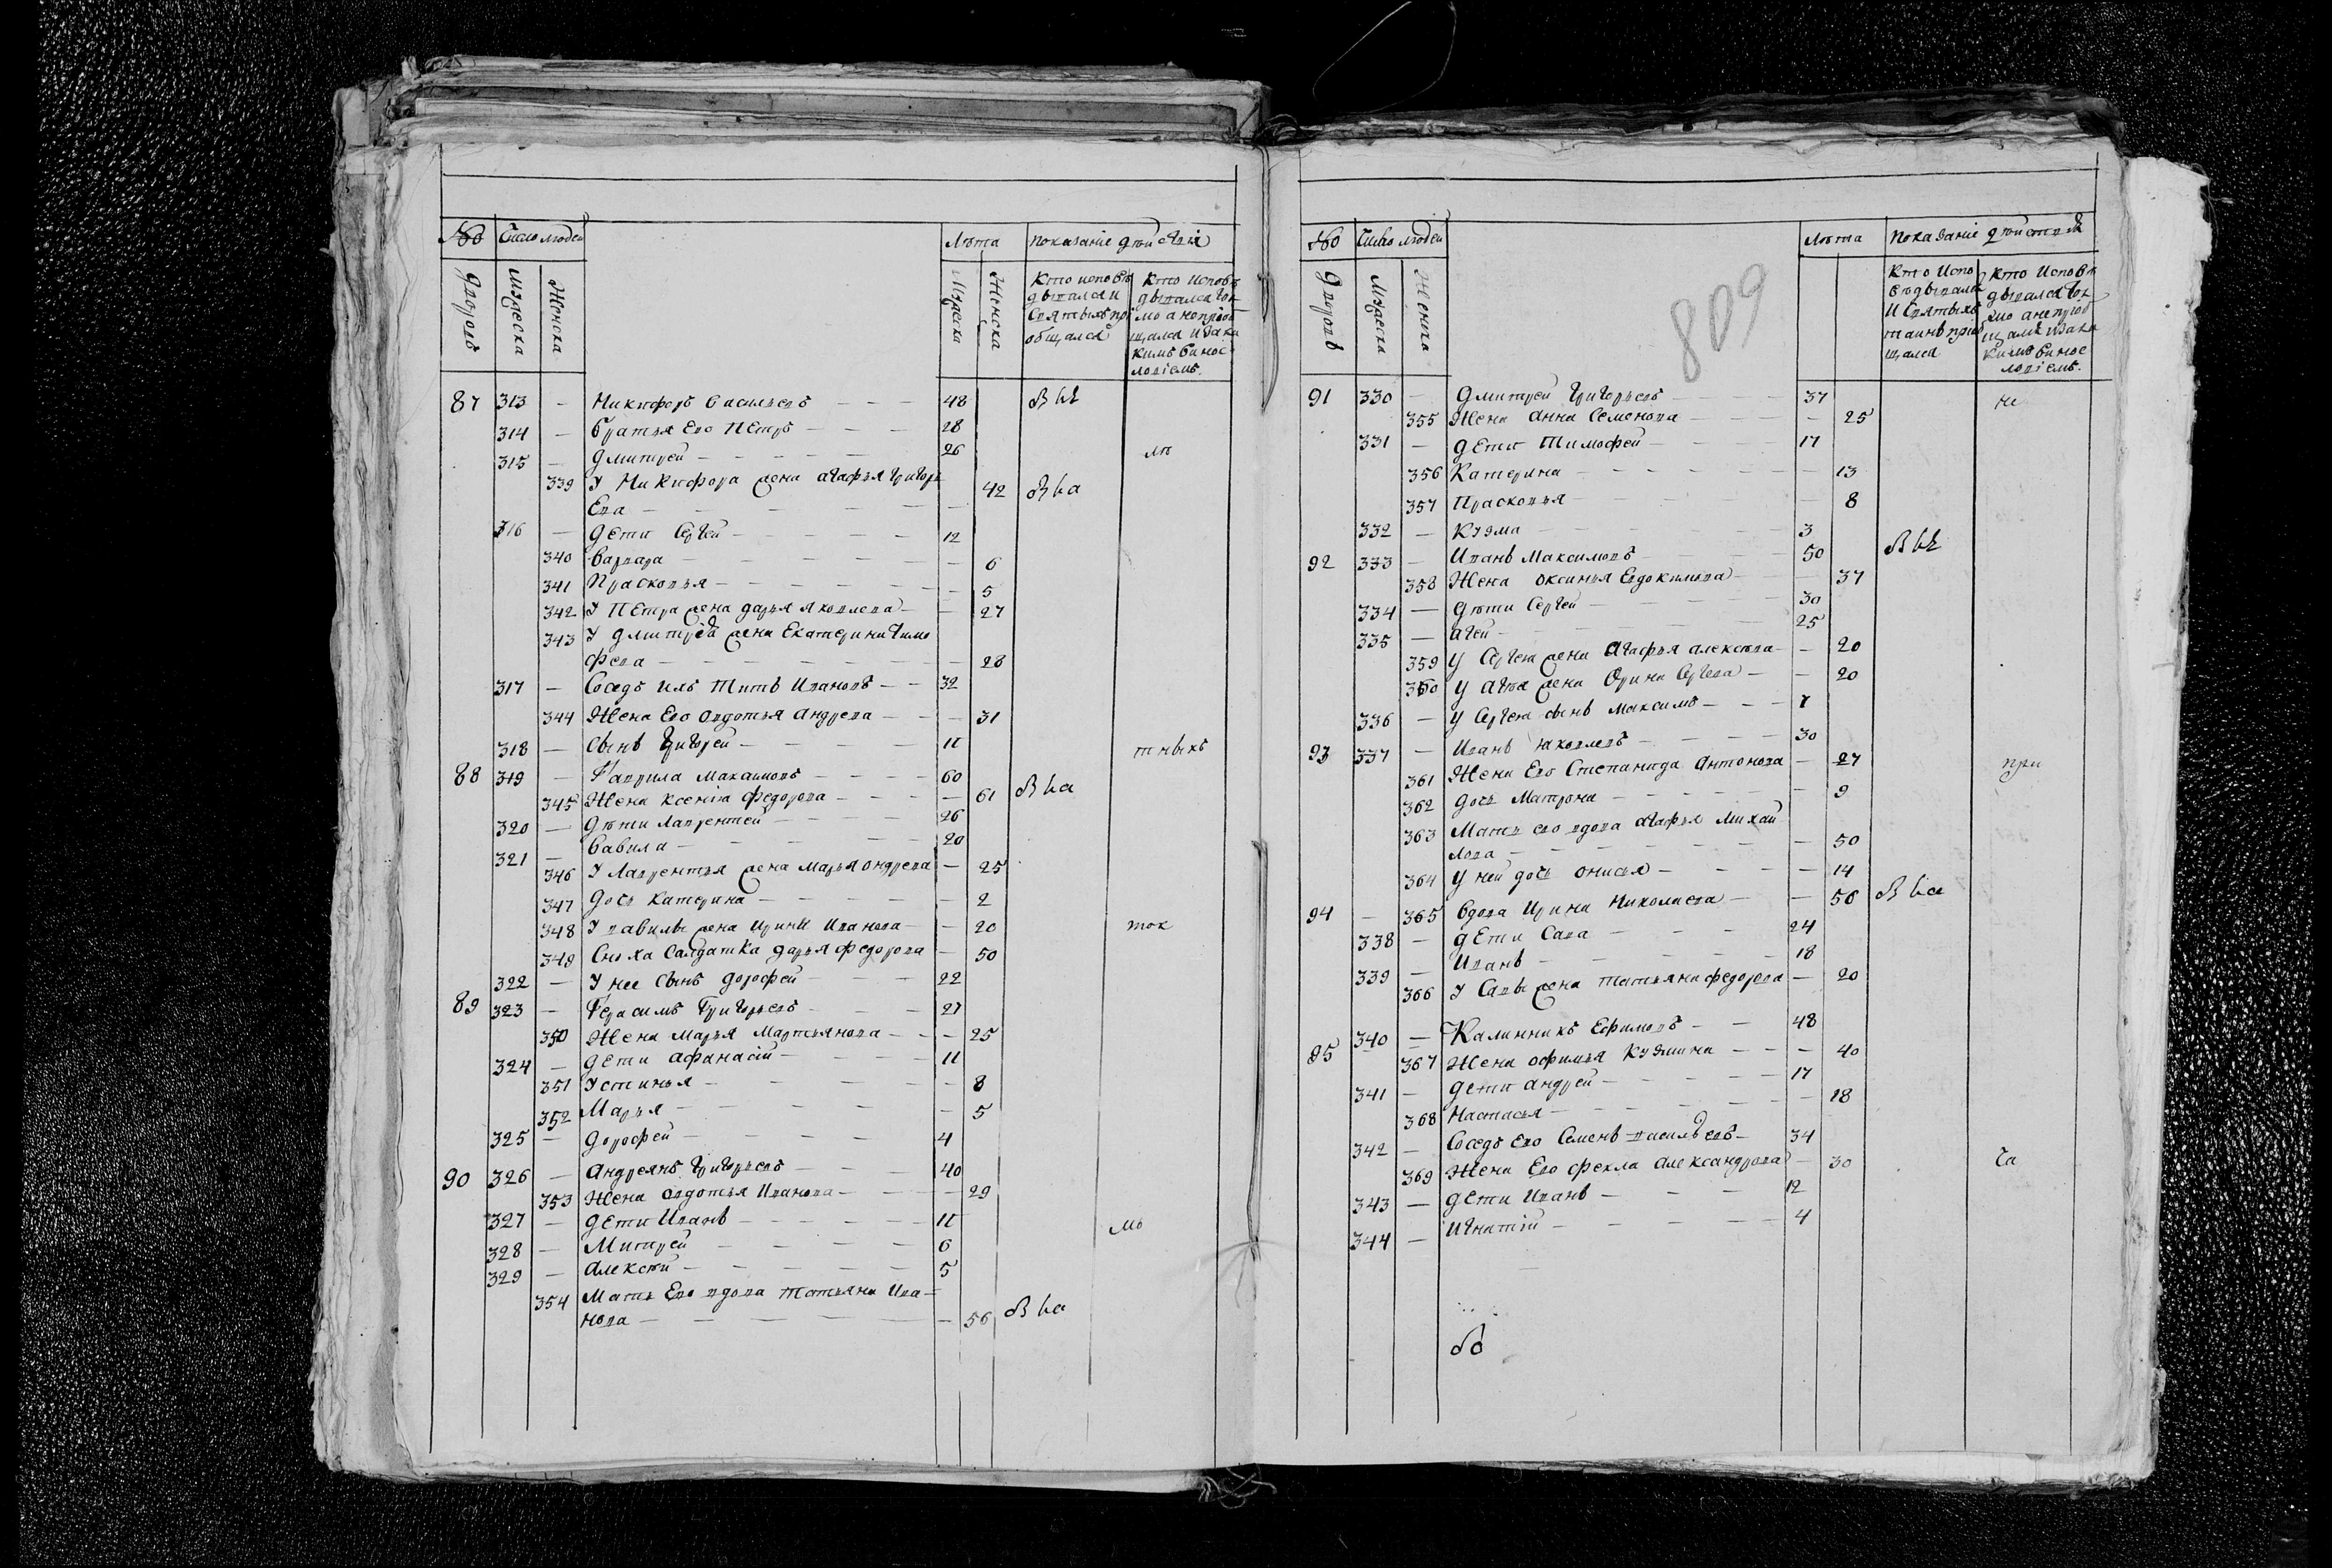 № Число людей Лѣта показание дѣйствия
Дворовъ Мужеска Женска Мужеска Женска
Кто исповѣ Кто исповѣ
дывался и дывался ток
Святыхъ пр мо а неприоб
общался щался и за ка
кимъ винос
ловіемъ.
87 313 — Никифоръ Васильевъ — 48
314 — братья Его Петръ — 28
315 — Дмитрей — 26
339 У Никифора жена агафья григорь
Ева — 42
316 — Дети Сергей — 12
340 Варвара — 6
341 Прасковья — 5
342 У Петра жена дарья яковлева — 27
343 У Дмитрея жена Екатерина тимо
феева — 28
317 — Соседъ ихъ Титъ Ивановъ — 32
344 Жена Его овдотья андреева — 31
318 — Сынъ григорей — 11 тныхъ
88 319 — Гаврила Макаимовъ — 60
345 Жена ксения федорова — 61
320 — Дѣти Лаврентей — 26
321 — Вавила — 20
346 У Лаврентья жена марья ондреева — 25
347 Дочь катерина — 2
348 У вавилы жена ирина Иванова — 20 ток
349 Сноха Салдатка дарья федорова — 50
322 — У нее Сынъ дорофей — 22
89 323 — Герасимъ Григорьевъ — 27
350 Жена марья Мартьянова — 25
324 — дети афанасій — 11
351 Устинья — 8
352 Марья — 5
325 — дорофей — 4
90 326 — андреянъ григорьевъ — 40
353 Жена овдотья Иванова — 29
327 — дети Иванъ — 11 мо
328 — Митрей — 6
329 — алексѣй — 5
354 Мать Его вдова татьяна Ива
нова — 56
№ Число людей Лѣта показание дѣйствия
Дворовъ Мужеска Женска
Кто Испо Кто Исповѣ
вѣдывался дывался ток
И Святыхъ мо а неприоб
таинъ приоб щался и за ка
щался кимъ винос
ловіемъ.
809
91 330 — Дмитрей григорьевъ — 37 не
355 Жена анна Семенова — 25
331 — дети Тимофей — 17
356 Катерина — 13
357 Прасковья — 8
332 — Кузма — 3
92 333 — Иванъ Максимовъ — 50
358 Жена оксинья Евдокимова — 37
334 — дѣти Сергей — 30
335 — агей — 25
359 у Сергея жена агафья алексеева — 20
360 у агея жена Орина Сергеева — 20
336 — у Сергея сынъ максимъ — 1
93 337 — Иванъ яковлевъ — 30
361 Жена Его Степанида антонова — 27 при
362 дочь Матрона — 9
363 Мать его вдова агафья михай
лова — 50
364 у ней дочь онисья — 14
94 — 365 вдова Ирина Николаева — 56
338 — дети Сава — 24
339 — Иванъ — 18
366 У Савы жена татьяна федорова — 20
95 340 — Калинникъ Ефимовъ — 48
367 Жена офимья кузмина — 40
341 — дети андрей — 17
368 Настасья — 18
342 — Соседъ Его Семенъ васильевъ — 34
369 Жена Его фекла александрова — 30 ча
343 — дети Иванъ — 12
344 — игнатій — 4